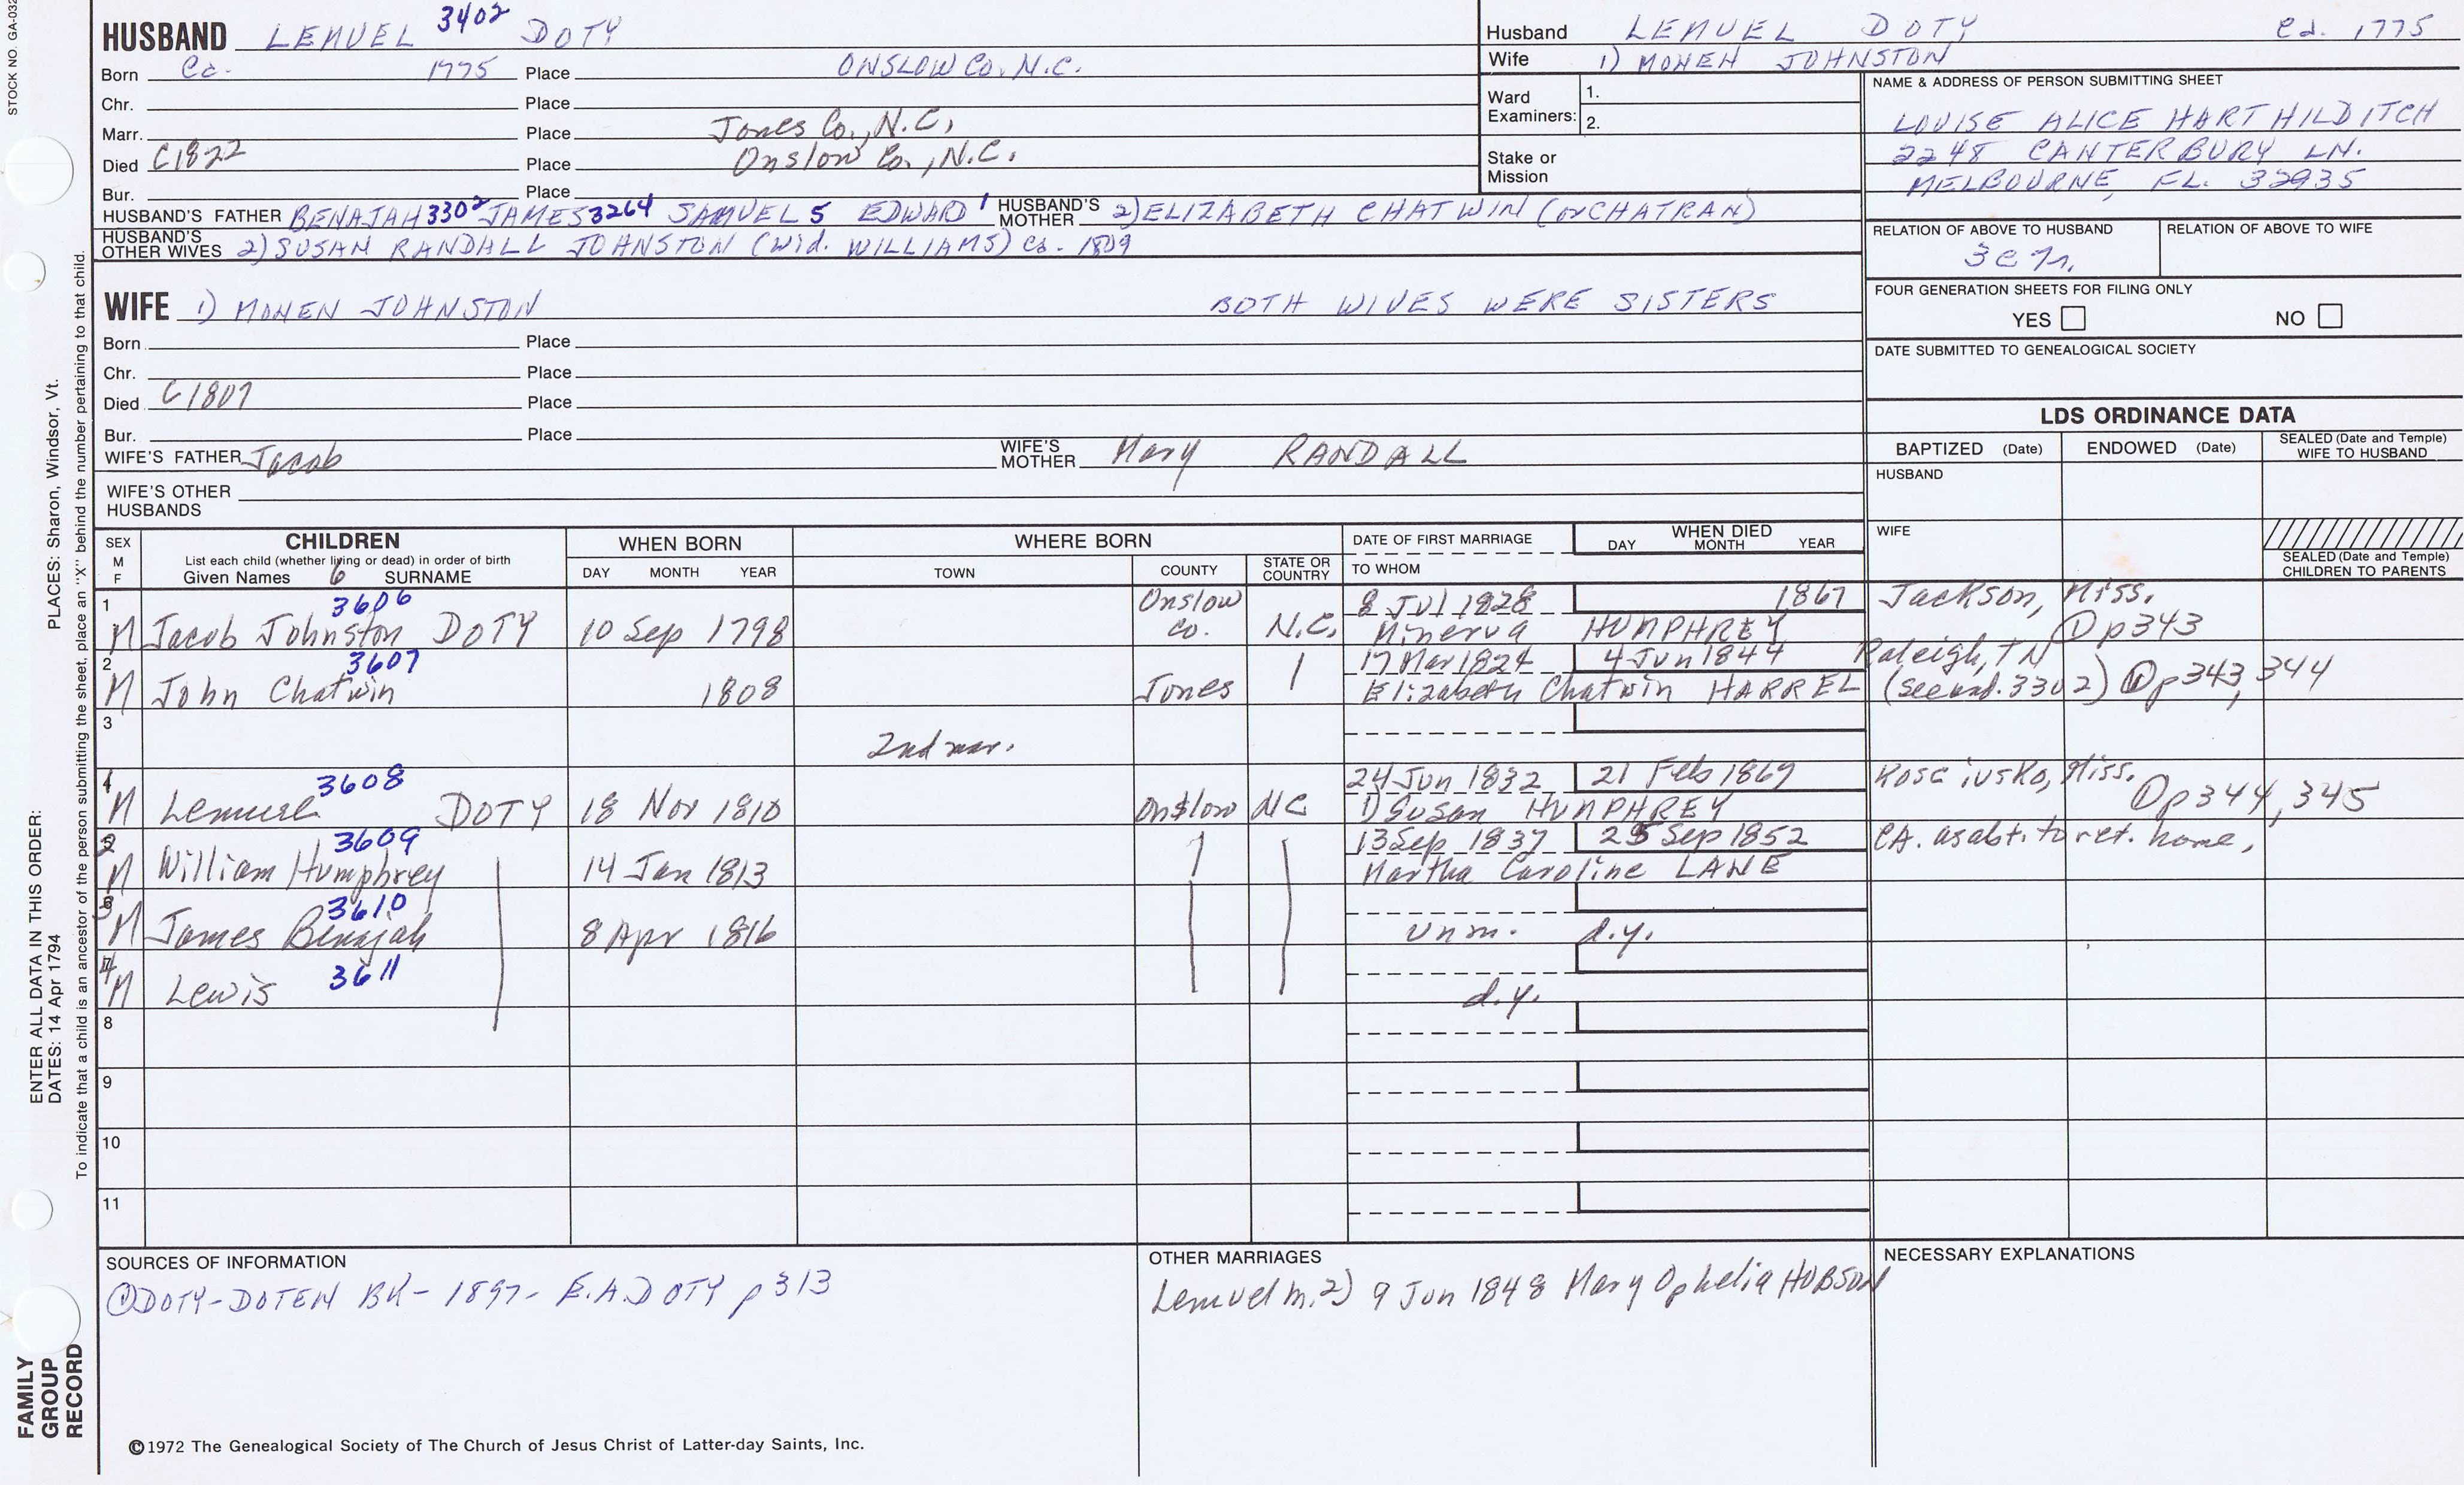 STOCK NO. GA-032
HUSBAND LEMUEL 3402 DOTY
Born Ca. 1775 Place ONSLOW CO. N.C.
Chr. Place
Marr. Place Jones Co., N.C.
Died C1822 Place Onslow Co., N.C.
Bur. Place
HUSBAND'S FATHER BENAJAH 3302 JAMES 3264 SAMUEL 5 EDWARD 1 HUSBAND'S MOTHER 2) ELIZABETH CHATWIN (or CHATRAN)
HUSBAND'S OTHER WIVES 2) SUSAN RANDALL JOHNSTON (wid. WILLIAMS) Ca. 1809
Husband LEMUEL DOTY Ca. 1775
Wife 1) MOHEN JOHNSTON
Ward Examiners: 1.
2.
Stake or Mission
NAME & ADDRESS OF PERSON SUBMITTING SHEET
LOUISE ALICE HART HILDITCH
2248 CANTERBURY LN.
MELBOURNE, FL. 32935
RELATION OF ABOVE TO HUSBAND
RELATION OF ABOVE TO WIFE
FOUR GENERATION SHEETS FOR FILING ONLY
YES NO
DATE SUBMITTED TO GENEALOGICAL SOCIETY
WIFE 1) MOHEN JOHNSTON BOTH WIVES WERE SISTERS
Born Place
Chr. Place
Died C1807 Place
Bur. Place
WIFE'S FATHER Jacob WIFE'S MOTHER Mary RANDALL
WIFE'S OTHER HUSBANDS
LDS ORDINANCE DATA
BAPTIZED (Date) ENDOWED (Date) SEALED (Date and Temple) WIFE TO HUSBAND
HUSBAND
WIFE
SEALED (Date and Temple) CHILDREN TO PARENTS
SEX M F
CHILDREN
List each child (whether living or dead) in order of birth
Given Names 6 SURNAME
WHEN BORN
DAY MONTH YEAR
WHERE BORN
TOWN COUNTY STATE OR COUNTRY
DATE OF FIRST MARRIAGE
TO WHOM
WHEN DIED
DAY MONTH YEAR
1 M 3606 Jacob Johnston DOTY 10 Sep 1798 Onslow Co. N.C. 8 Jul 1828 1867 Jackson, Miss.
Minerva HUMPHREY ① p343
2 M 3607 John Chatwin 1808 Jones 17 Mar 1824 4 Jun 1844 Raleigh, TN
Elizabeth Chatwin HARREL (see 3302) ① p343, 344
3
2nd mar.
4 M 3608 DOTY 18 Nov 1810 Onslow NC 24 Jun 1832 21 Feb 1869 Kosciusko, Miss.
1) Susan HUMPHREY ① p344, 345
M 3609 William Humphrey 14 Jan 1813 13 Sep 1837 25 Sep 1852 CA. as abt. to ret. home,
Martha Caroline LANE
M 3610 James Benajah 8 Apr 1816 unm. d.y.
M 3611 Lewis d.y.
8
9
10
11
SOURCES OF INFORMATION
① DOTY-DOTEN BK - 1897 - E.A. DOTY p 313
OTHER MARRIAGES
Lemuel m. 2) 9 Jun 1848 Mary Ophelia HOBSON
NECESSARY EXPLANATIONS
©1972 The Genealogical Society of The Church of Jesus Christ of Latter-day Saints, Inc.
FAMILY GROUP RECORD
ENTER ALL DATA IN THIS ORDER:
DATES: 14 Apr 1794
PLACES: Sharon, Windsor, Vt.
To indicate that a child is an ancestor of the person submitting the sheet, place an "X" behind the number pertaining to that child.